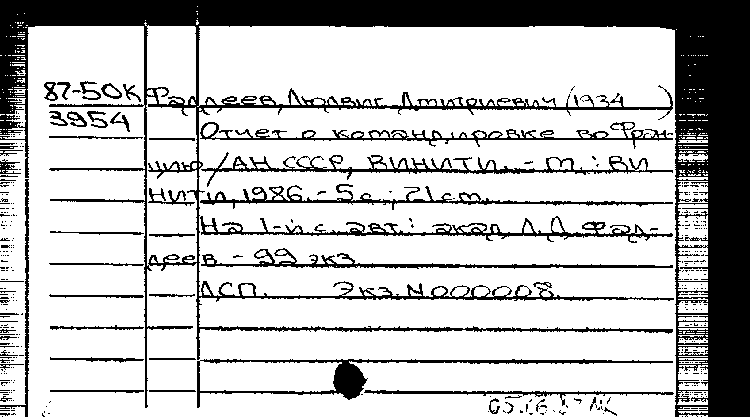 87-50К Фаддеев, Людвиг Дмитриевич (1934 )
3954 Отчет о командировке во Фран-
цию / АН СССР, ВИНИТИ. - М. : ВИ
НИТИ, 1986. - 5 с. ; 21 см.
На 1-й с. авт.: акад. Л.Д. Фад-
деев - 99 экз.
ДСП. Экз. N000008.